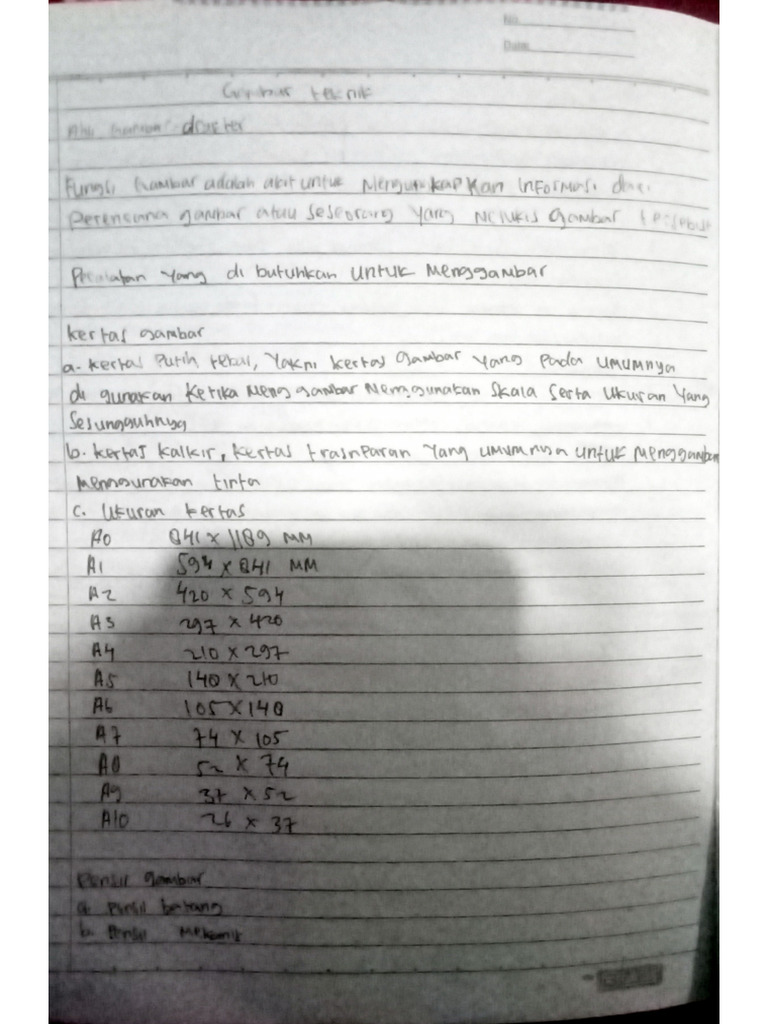 No
Date
Gambar teknik
Ahli Gambar drafter
Fungsi Gambar adalah alat untuk Mengungkapkan Informasi dari
Perencana gambar atau Seseorang Yang Melukis Gambar tersebut
Peralatan Yang di butuhkan untuk Menggambar
kertas gambar
a. kertas Putih tebal, Yakni kertas Gambar Yang Pada umumnya
di gunakan ketika Menggambar Menggunakan Skala Serta Ukuran Yang
Sesungguhnya
b. kertas kalkir, kertas trasnparan Yang umumnya untuk Menggambar
Menggunakan tinta
c. Ukuran kertas
A0 841 × 1189 MM
A1 594 × 841 MM
A2 420 × 594
A3 297 × 420
A4 210 × 297
A5 148 × 210
A6 105 × 148
A7 74 × 105
A8 52 × 74
A9 37 × 52
A10 26 × 37
Pensil gambar
a. Pensil batang
b. Pensil Mekanik